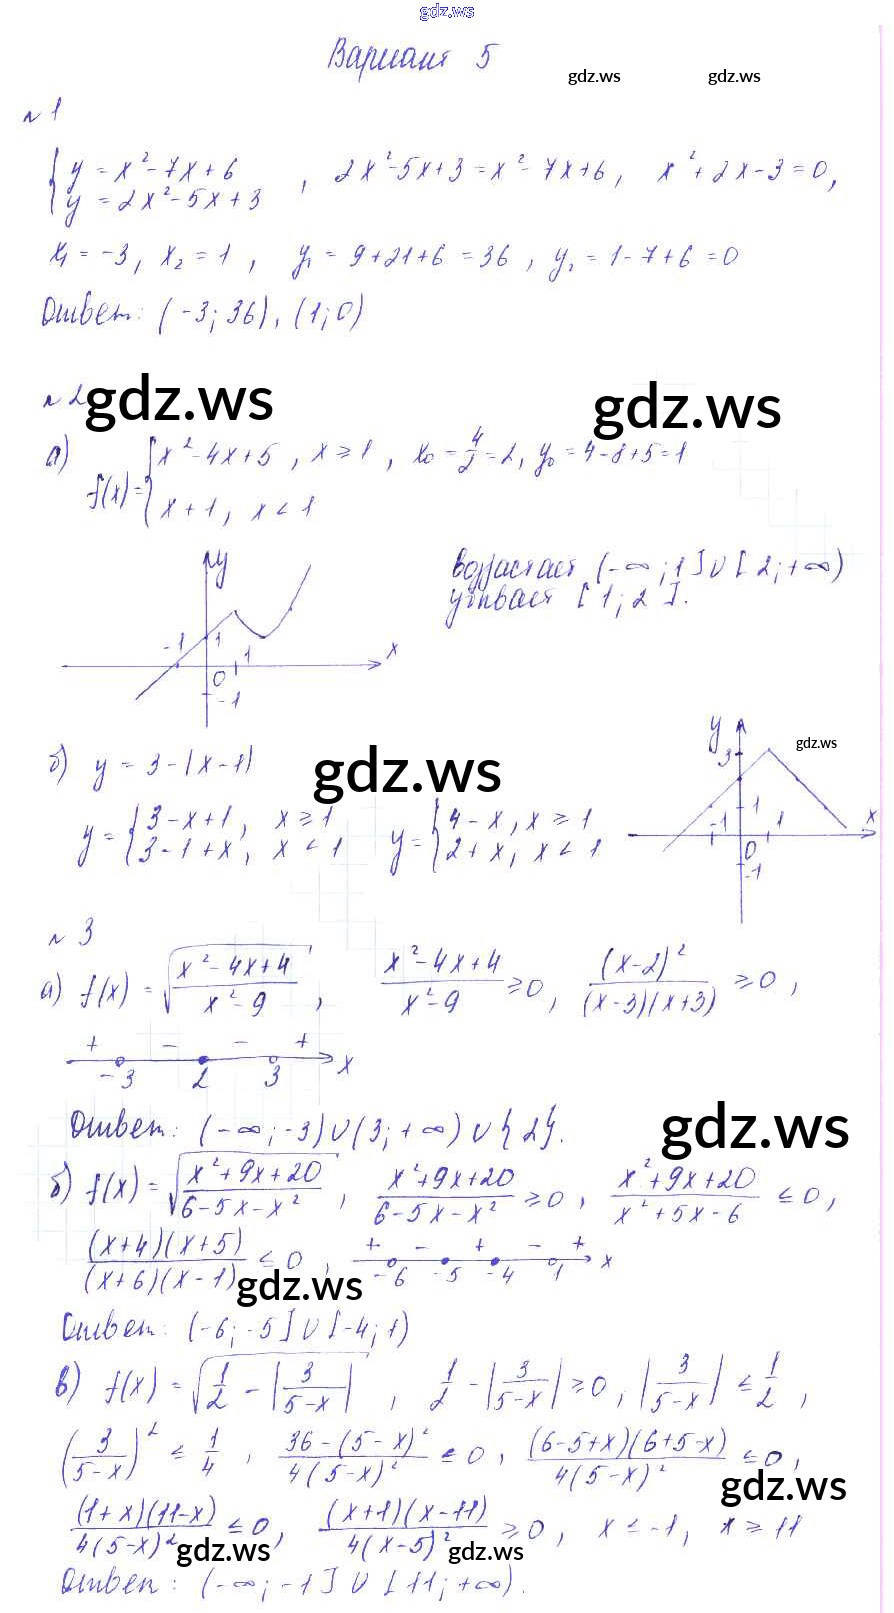 gdz.ws
Вариант 5
gdz.ws gdz.ws
№ 1
{ y = x² - 7x + 6
{ y = 2x² - 5x + 3 , 2x² - 5x + 3 = x² - 7x + 6, x² + 2x - 3 = 0,
x₁ = -3, x₂ = 1, y₁ = 9 + 21 + 6 = 36, y₂ = 1 - 7 + 6 = 0
Ответ: (-3; 36), (1; 0)
№ 2 gdz.ws gdz.ws
а) f(x) = { x² - 4x + 5, x ≥ 1, x₀ = 4/2 = 2, y₀ = 4 - 8 + 5 = 1
x + 1, x < 1
y
возрастает (-∞; 1] ∪ [2; +∞)
убывает [1; 2].
-1 1 0 1 x
-1
б) y = 3 - |x - 1| gdz.ws
y 3 gdz.ws
y = { 3 - x + 1, x ≥ 1 y = { 4 - x, x ≥ 1
3 - 1 + x, x < 1 2 + x, x < 1
-1 1 0 1 x
-1
№ 3
а) f(x) = √((x² - 4x + 4)/(x² - 9)), (x² - 4x + 4)/(x² - 9) ≥ 0, (x - 2)²/((x - 3)(x + 3)) ≥ 0,
+ - - +
-3 2 3 x
Ответ: (-∞; -3) ∪ (3; +∞) ∪ {2}.
gdz.ws
б) f(x) = √((x² + 9x + 20)/(6 - 5x - x²)), (x² + 9x + 20)/(6 - 5x - x²) ≥ 0, (x² + 9x + 20)/(x² + 5x - 6) ≤ 0,
((x + 4)(x + 5))/((x + 6)(x - 1)) ≤ 0, + - + - +
gdz.ws -6 -5 -4 1 x
Ответ: (-6; -5] ∪ [-4; 1)
в) f(x) = √(1/2 - |3/(5 - x)|), 1/2 - |3/(5 - x)| ≥ 0, |3/(5 - x)| ≤ 1/2,
(3/(5 - x))² ≤ 1/4, (36 - (5 - x)²)/(4(5 - x)²) ≤ 0, ((6 - 5 + x)(6 + 5 - x))/(4(5 - x)²) ≤ 0,
gdz.ws
((1 + x)(11 - x))/(4(5 - x)²) ≤ 0, ((x + 1)(x - 11))/(4(x - 5)²) ≥ 0, x ≤ -1, x ≥ 11
gdz.ws gdz.ws
Ответ: (-∞; -1] ∪ [11; +∞).